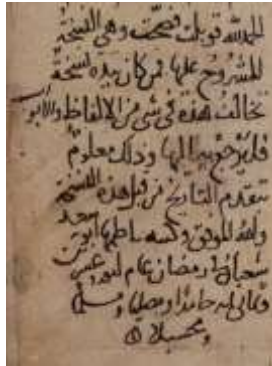 الحمد لله قوبلت فصحت وهي النسخة
المشروح عليها فمن كان بيده نسخة
تخالف هذه في شيء من الالفاظ والابو
فليرجع اليها وذلك معلوم
بتقدم التاريخ من قبل هذه النسخة
والله الموفق وكتبه
رمضان عام
حامدا ومصليا ومسلما
ومحسبلا